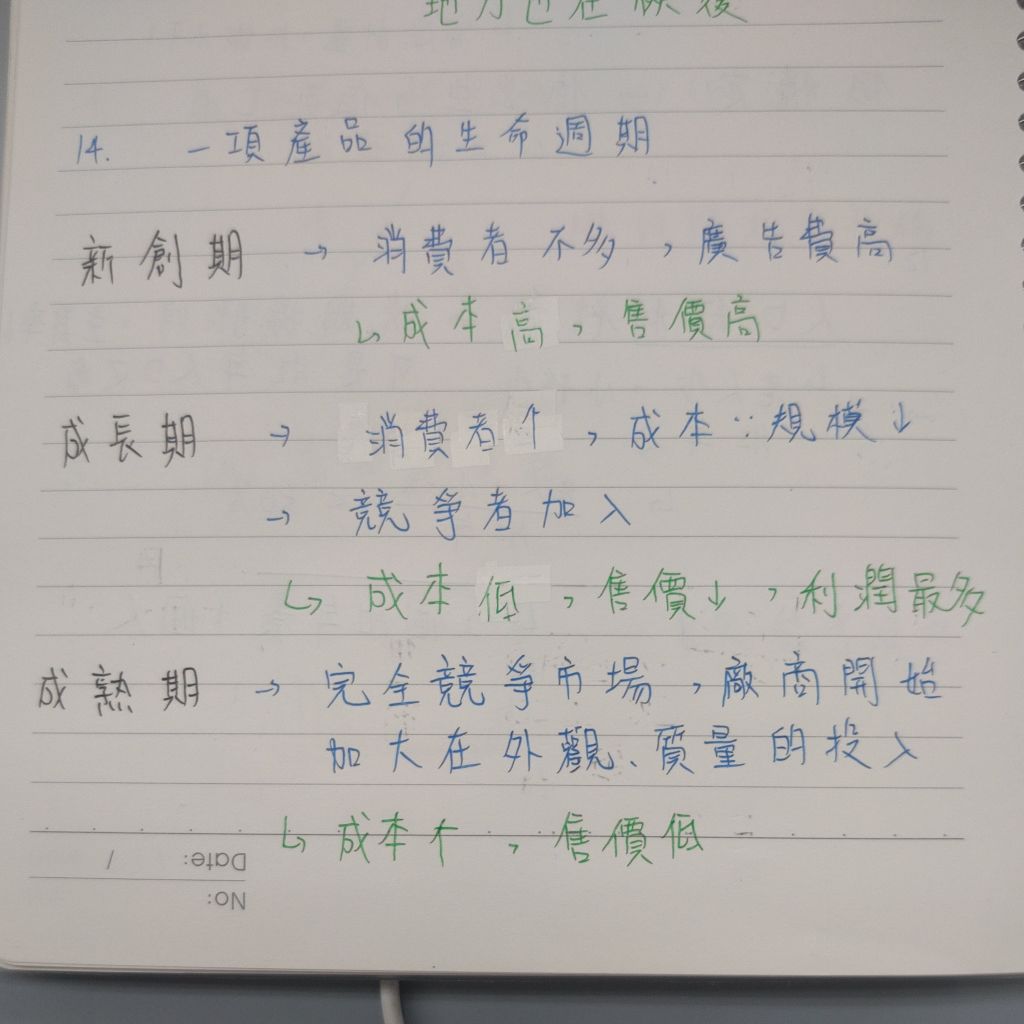 地方也在
14. 一項產品的生命週期
新創期 → 消費者不多，廣告費高
↳ 成本高，售價高
成長期 → 消費者↑，成本∵規模↓
→ 競爭者加入
↳ 成本低，售價↓，利潤最多
成熟期 → 完全競爭市場，廠商開始
加大在外觀、質量的投入
↳ 成本↑，售價低
Date: /
No: